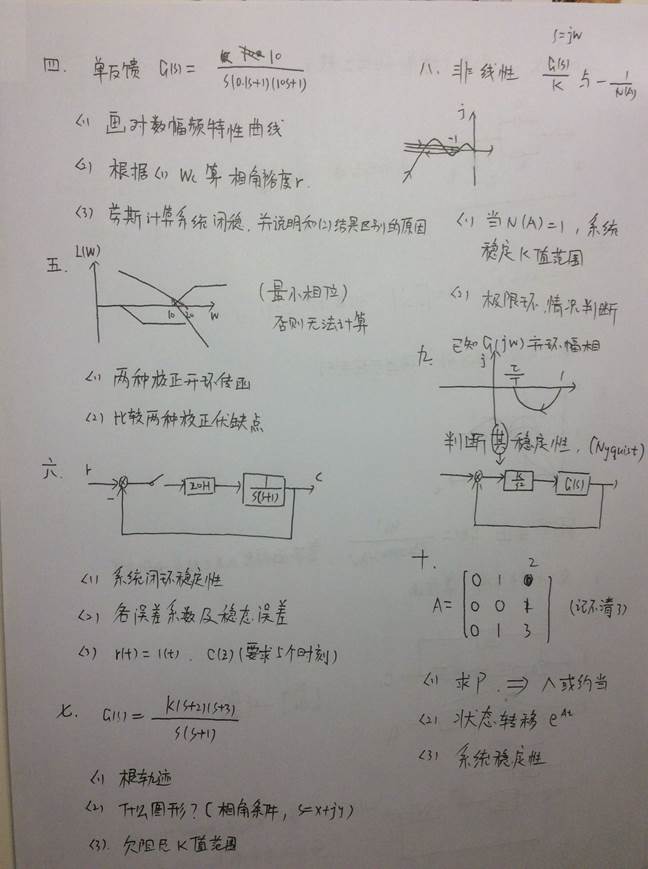 四. 单反馈 G(s) = 10 / s(0.1s+1)(10s+1)
(1) 画对数幅频特性曲线
(2) 根据(1) Wc 算相角裕度r.
(3) 劳斯计算系统闭稳, 并说明和(2)结果区别的原因
五. L(W)
10 20 W
(最小相位)
否则无法计算
(1) 两种校正开环传函
(2) 比较两种校正优缺点
六. r - ZOH 1/s(s+1) C
(1) 系统闭环稳定性
(2) 各误差系数及稳态误差
(3) r(t)=1(t). C(z) (要求5个时刻)
七. G(s) = K(s+2)(s+3) / s(s+1)
(1) 根轨迹
(2) 什么图形? (相角条件, s=x+jy)
(3). 欠阻尼K值范围
s=jw
八. 非线性 G(s)/K 与 -1/N(A)
j
-1
(1) 当N(A)=1, 系统
稳定K值范围
(2) 极限环情况判断
九. 已知G(jw)开环幅相
j 1
判断其稳定性, (Nyquist)
K/s2 G(s)
十. 2
A= [0 1 0
0 0 1
0 1 3] (记不清了)
(1) 求P. ⇒ Λ或约当
(2) 状态转移 e^At
(3) 系统稳定性